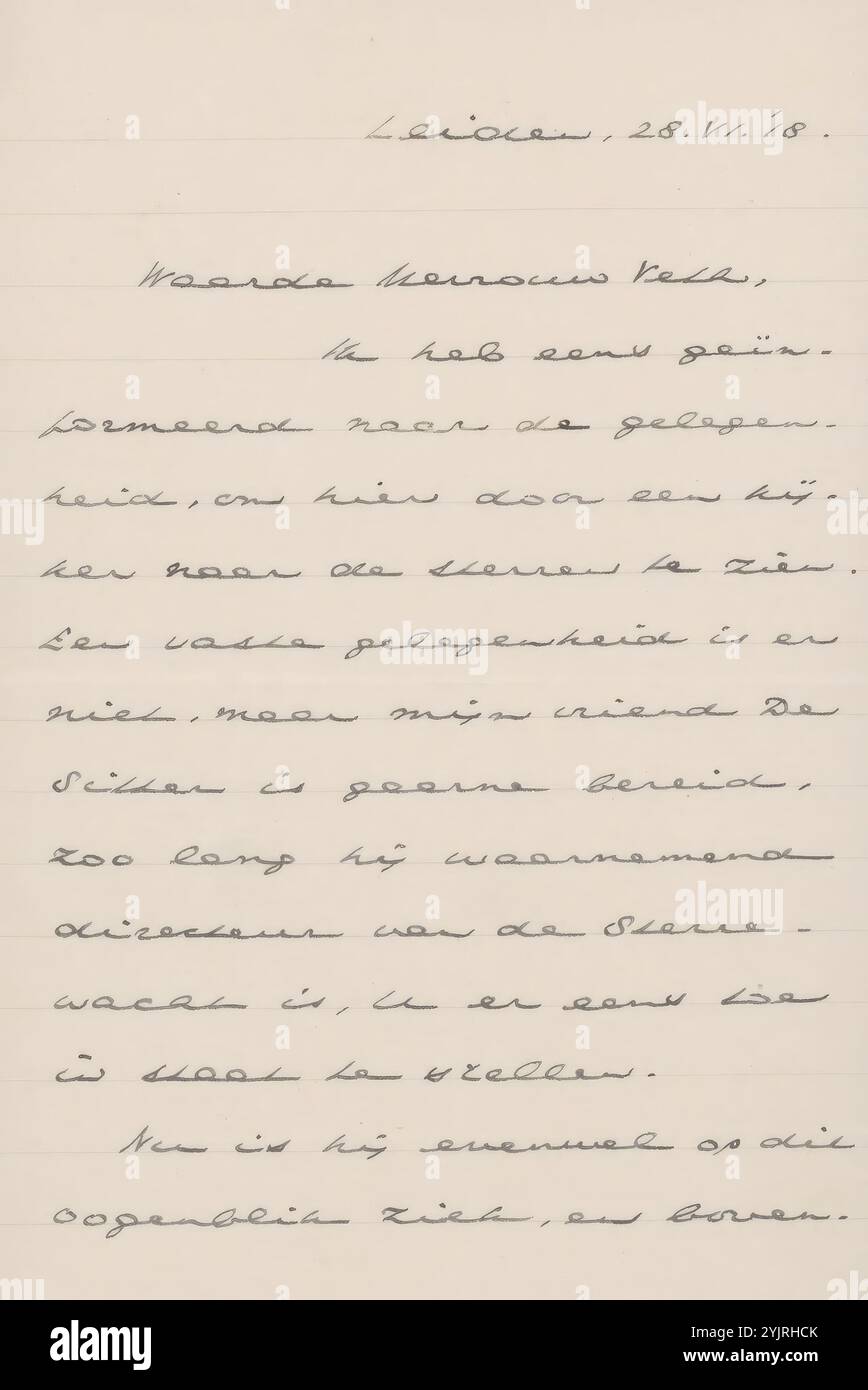 Leiden, 28.VI.'18.
Waarde Mevrouw Veth,
Ik heb eens geïn-
formeerd naar de gelegen-
heid, om hier door een kij-
ker naar de sterren te zien.
Een vaste gelegenheid is er
niet, maar mijn vriend De
Sitter is gaarne bereid,
zoo lang hij waarnemend
directeur van de Sterre-
wacht is, U er eens toe
in staat te stellen.
Nu is hij evenwel op dit
oogenblik ziek, en boven-
alamy
Image ID: 2YJRHCK
www.alamy.com